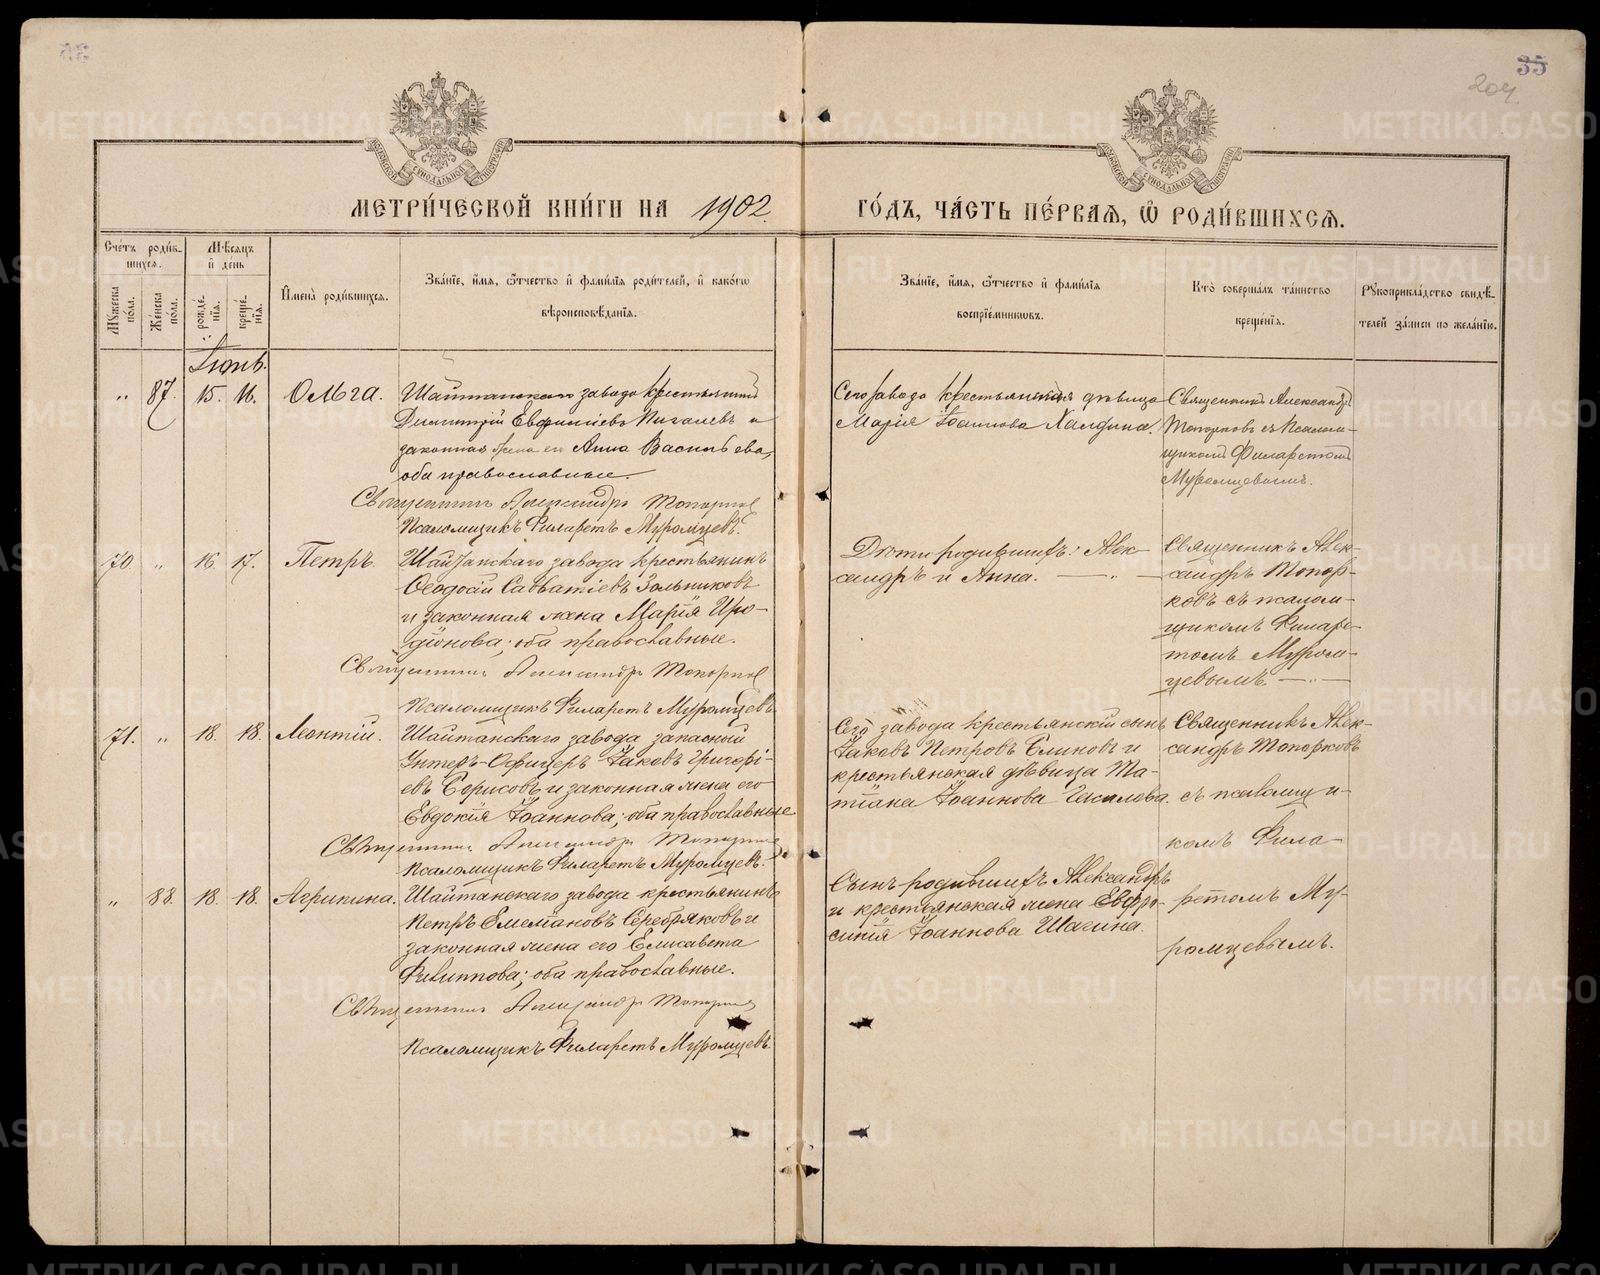 35
204
МЕТРИ́ЧЕСКОЙ КНИ́ГИ НА 1902
ГО́ДЪ, ЧА́СТЬ ПЕ́РВАѦ, Ѡ҆ РОДИ́ВШИХСѦ.
Сче́тъ роди́в-
шихсѧ.
Мѣ́сѧцъ
и҆ де́нь
Мꙋ́жеска по́ла.
Же́нска по́ла.
рожде́-
нїѧ.
креще́-
нїѧ.
И҆мена̀ роди́вшихсѧ.
Зва́нїе, и҆́мѧ, ѻ҆́тчество и҆ фами́лїѧ роди́телей, и҆ како́гѡ
вѣроисповѣ́данїѧ.
Зва́нїе, и҆́мѧ, ѻ҆́тчество и҆ фами́лїѧ
воспрїе́мникѡвъ.
Кто̀ соверша́лъ та́инство
креще́нїѧ.
Рꙋкоприкла́дство свидѣ́-
телей за́писи по жела́нїю.
Іюнь.
„ 87. 15. 16. Ольга.
Шайтанскаго завода крестьянинъ
Димитрій Евфиміевъ Пигалевъ и
законная жена его Анна Васильева,
оба православные.
Священникъ Александръ Топорковъ
Псаломщикъ Филаретъ Муромцевъ.
Сего завода крестьянская дѣвица
Марія Іоаннова Халдина.
Священникъ Александръ
Топорковъ съ Псалом-
щикомъ Филаретомъ
Муромцевымъ.
70. „ 16. 17. Петръ.
Шайтанскаго завода крестьянинъ
Ѳеодосій Савватіевъ Зольниковъ
и законная жена Марія Иро-
діонова; оба православные.
Священникъ Александръ Топорковъ
Псаломщикъ Филаретъ Муромцевъ
Дѣти родившихъ: Алек-
сандръ и Анна. — „ —
Священникъ Алек-
сандръ Топор-
ковъ съ псалом-
щикомъ Филаре-
томъ Муром-
цевымъ. — „ —
71. „ 18. 18. Леонтій.
Шайтанскаго завода запасный
Унтеръ-Офицеръ Іаковъ Григорі-
евъ Борисовъ и законная жена его
Евдокія Іоаннова; оба православные
Священникъ Александръ Топорковъ
Псаломщикъ Филаретъ Муромцевъ.
Сего завода крестьянскій сынъ
Іаковъ Петровъ Блиновъ и
крестьянская дѣвица Та-
тіана Іоаннова
Священникъ Алек-
сандръ Топорковъ
съ псаломщи-
комъ Фила-
ретомъ Му-
ромцевымъ.
„ 88. 18. 18. Агрипина.
Шайтанскаго завода крестьянинъ
Петръ Емеліановъ Серебряковъ и
законная жена его Елисавета
Филиппова; оба православные.
Священникъ Александръ Топорковъ
Псаломщикъ Филаретъ Муромцевъ.
Сынъ родившихъ Александръ
и крестьянская жена Евфро-
синія Іоаннова Шагина.
METRIKI.GASO-URAL.RU